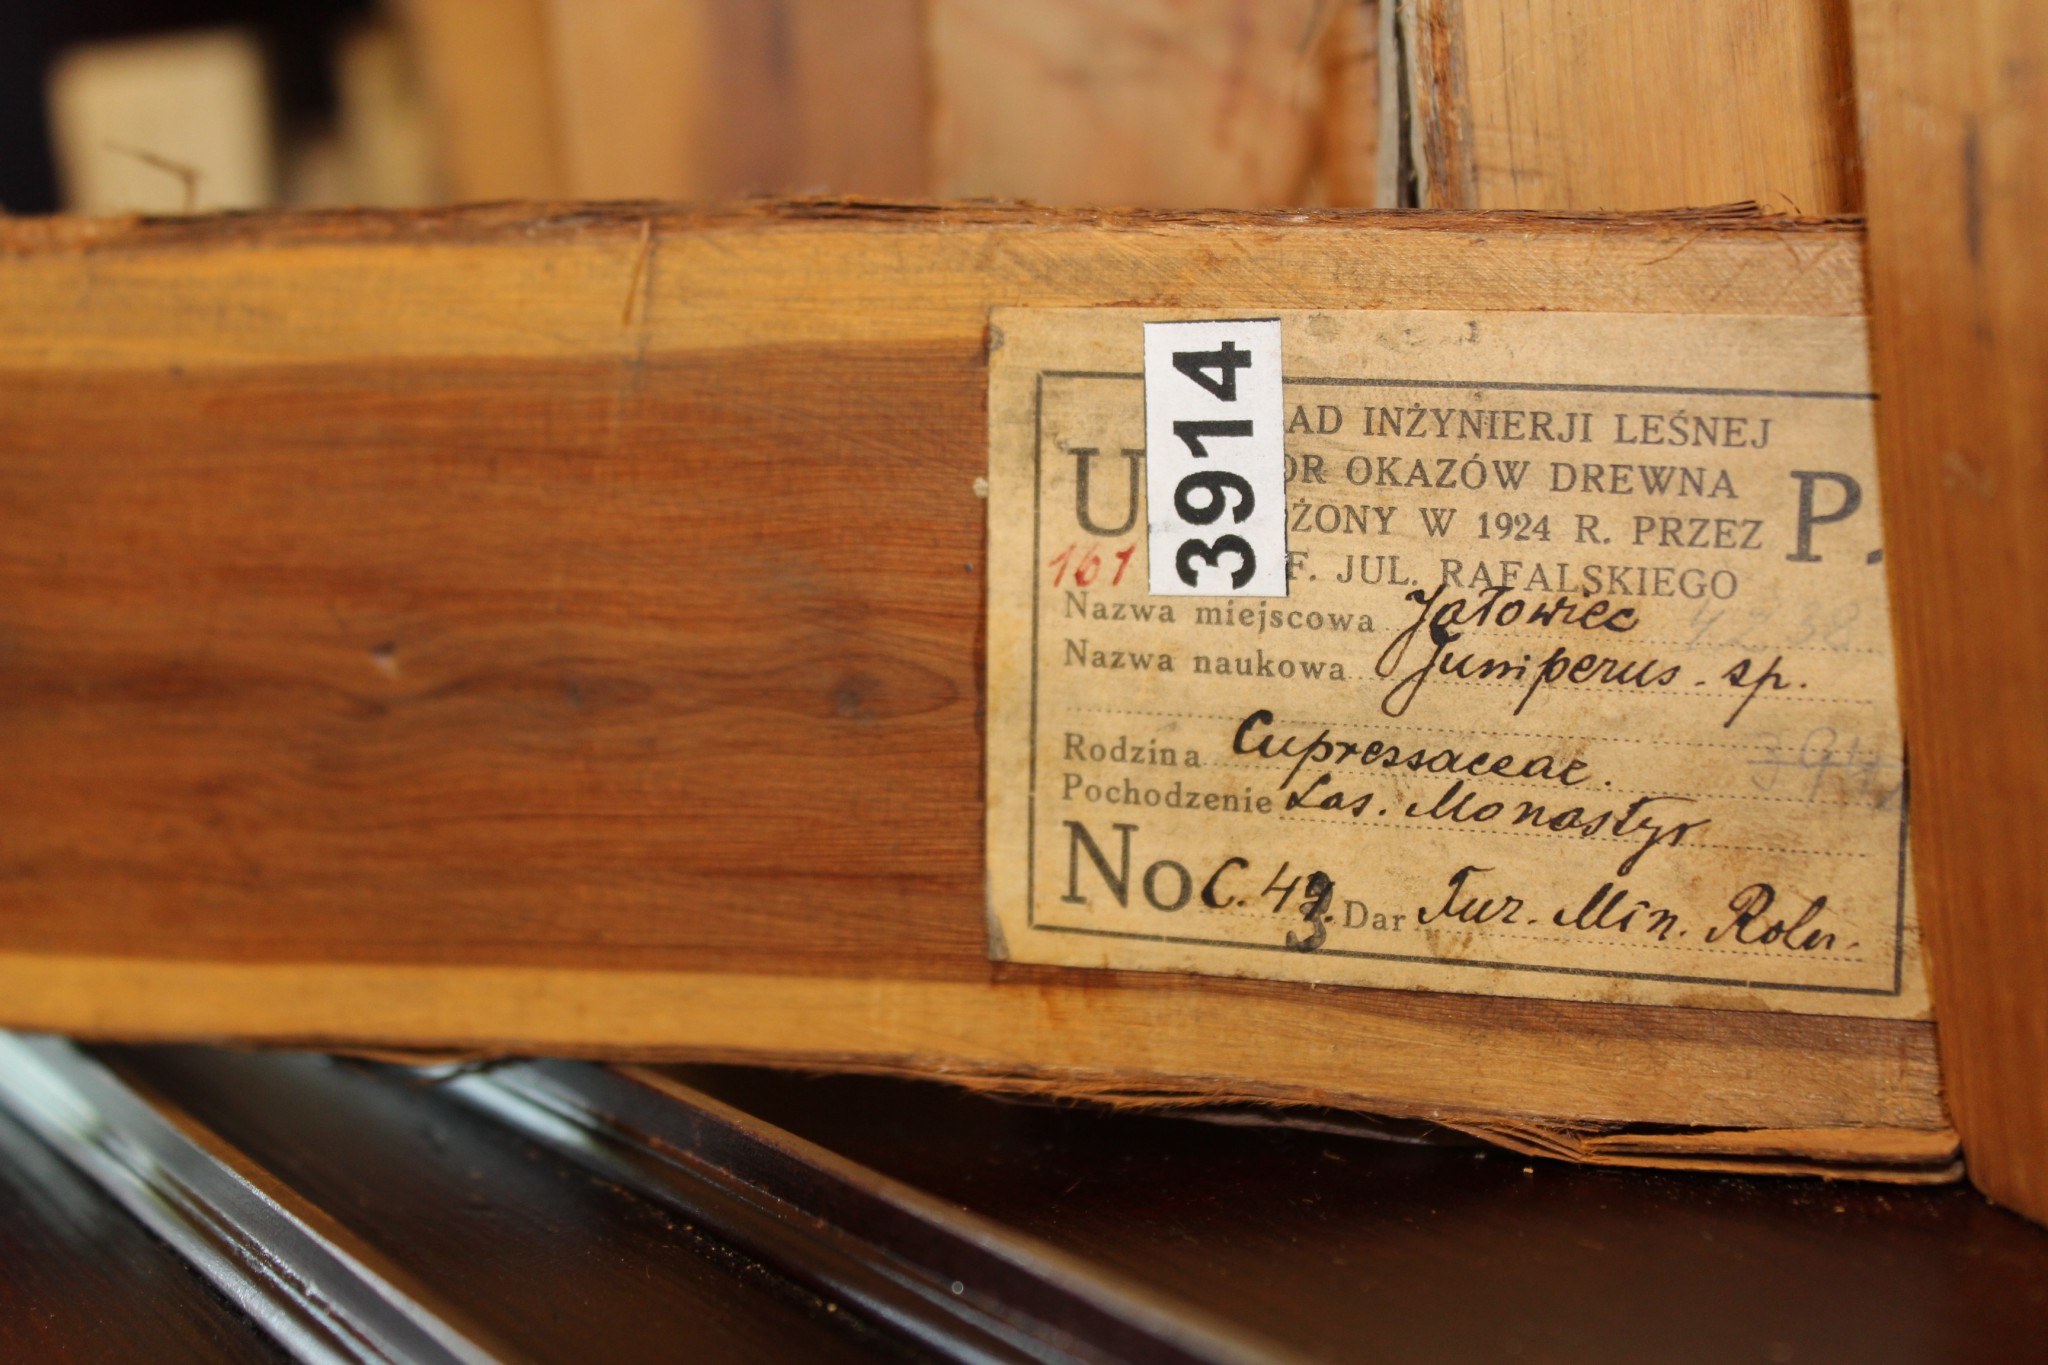 3914
AD INŻYNIERJI LEŚNEJ
U OR OKAZÓW DREWNA P.
ŻONY W 1924 R. PRZEZ
161 F. JUL. RAFALSKIEGO
Nazwa miejscowa Jałowiec 4238
Nazwa naukowa Juniperus. sp.
Rodzina Cupressaceae.
Pochodzenie Las. Monastyr
No C. Dar Tur. Min. Roln.